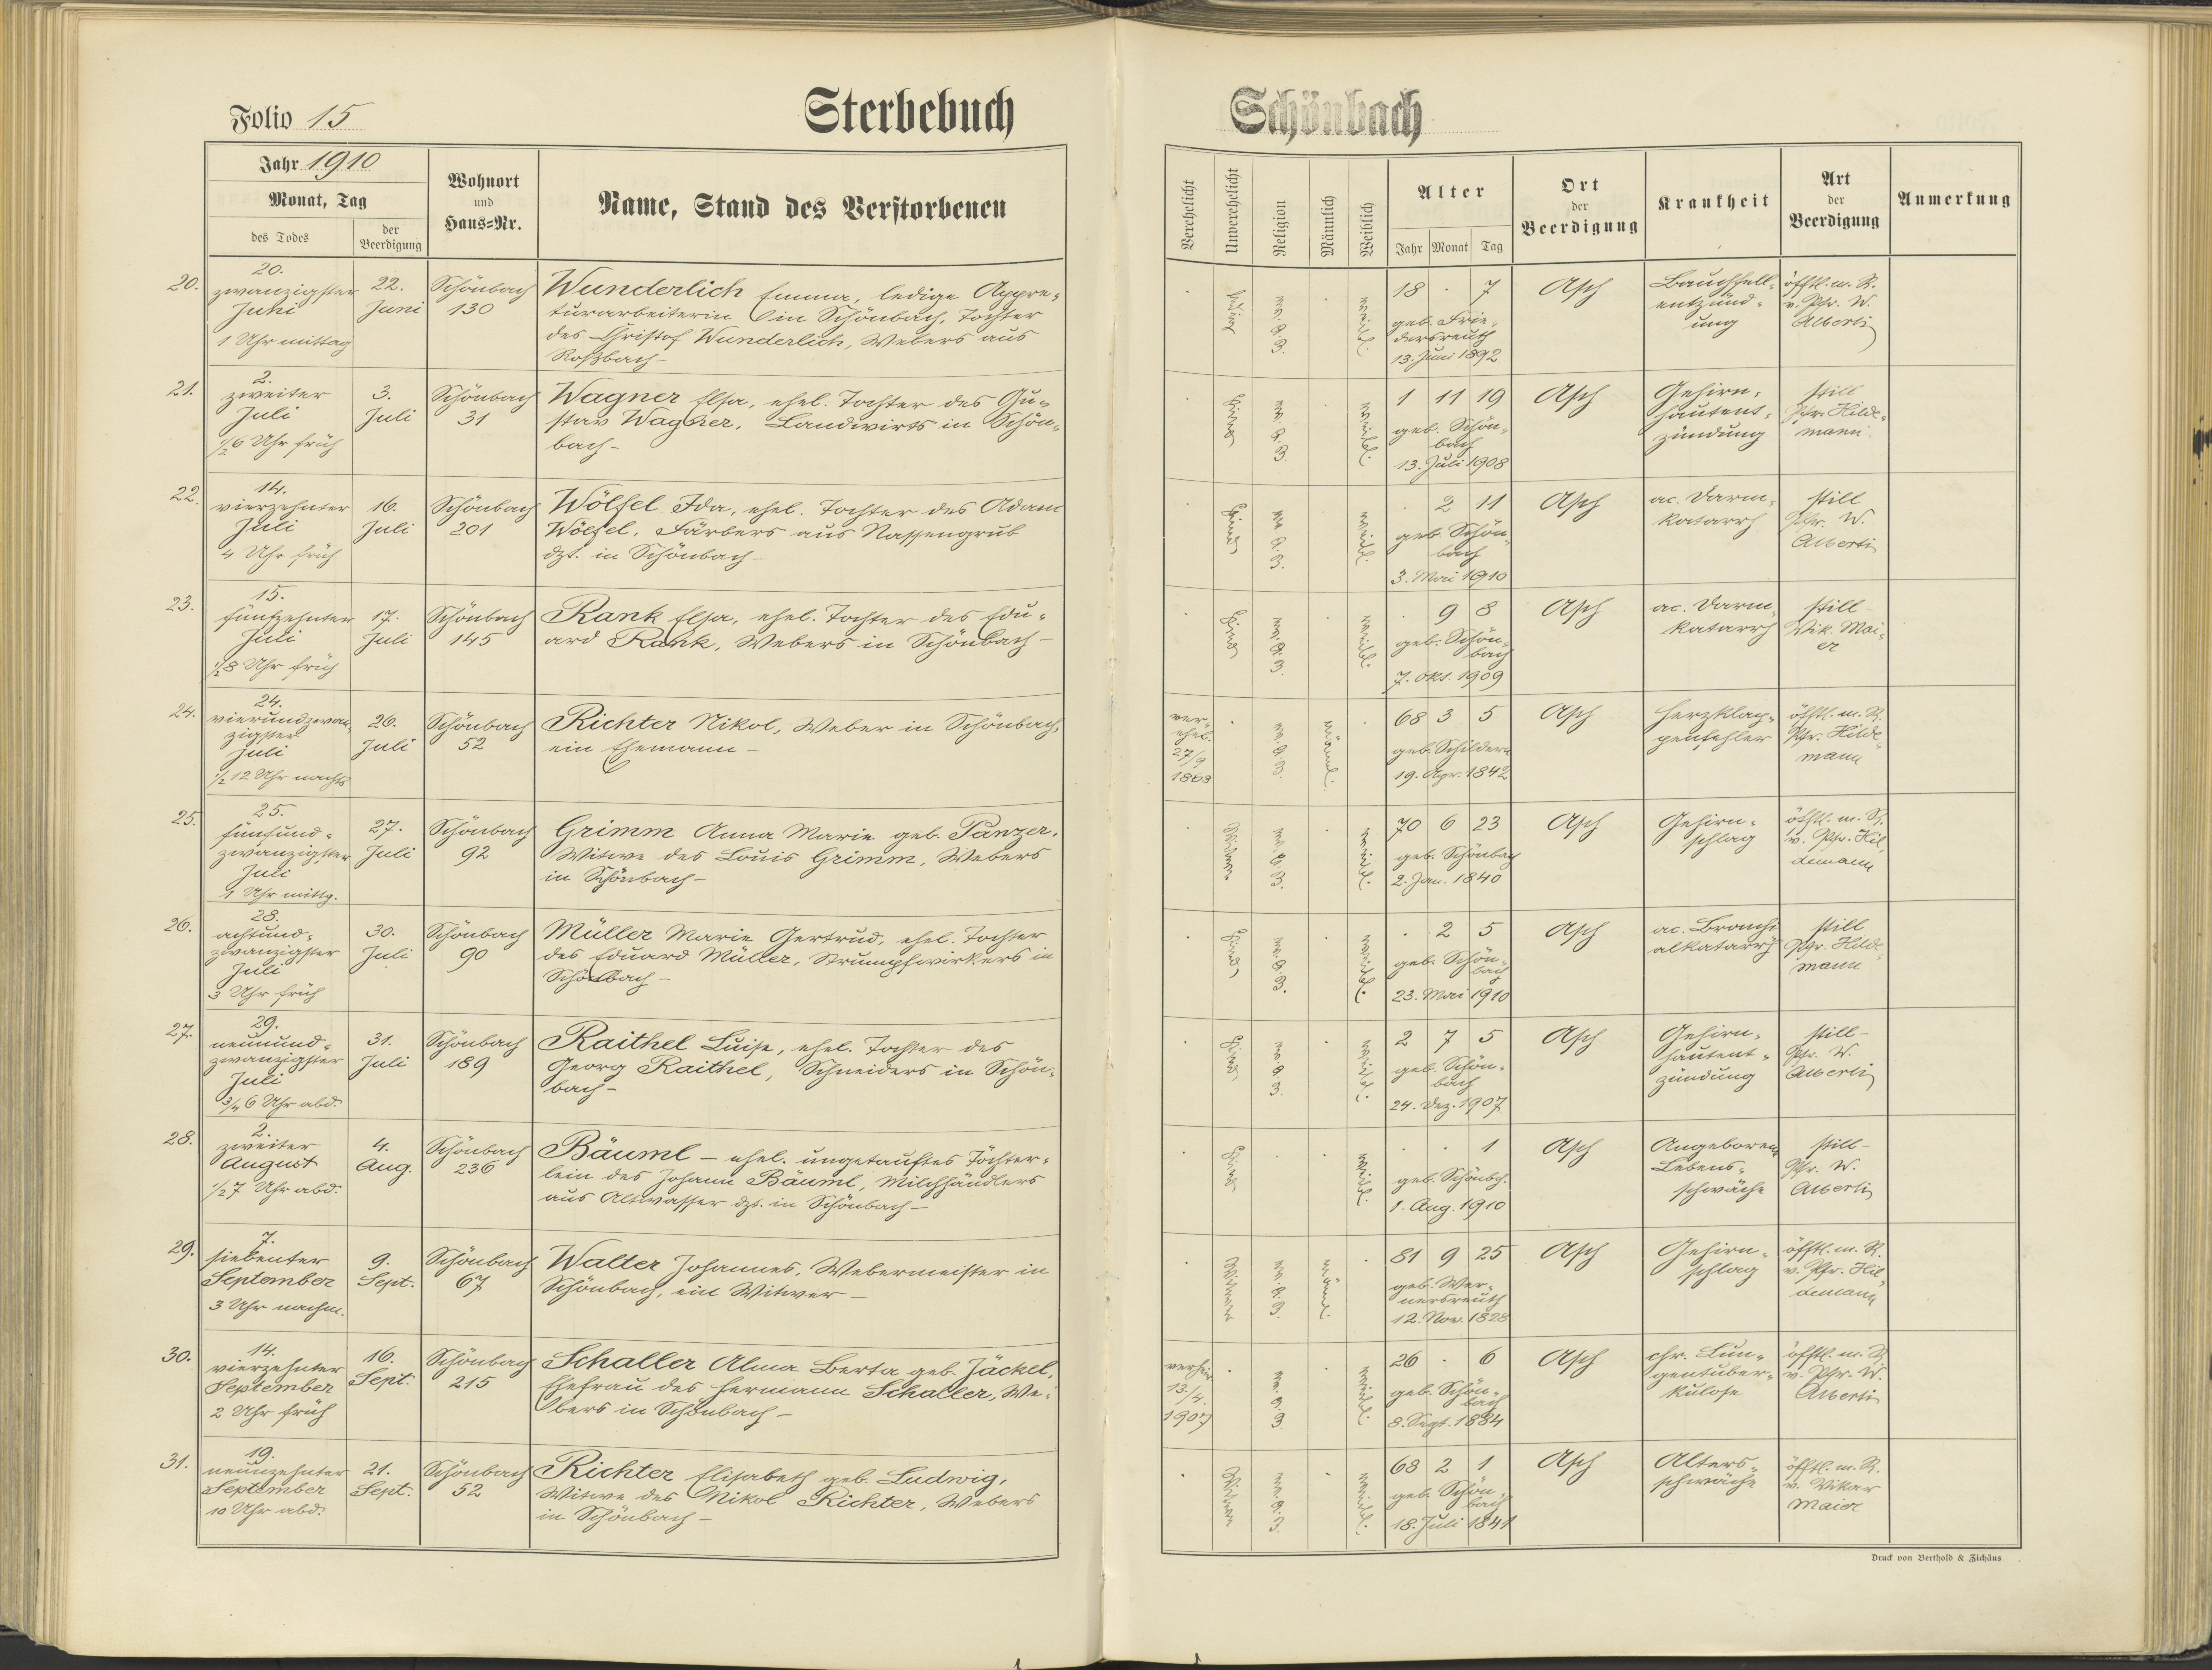 Folio 15
Sterbebuch
Schönbach
Jahr 1910
Monat, Tag
des Todes
der Beerdigung
Wohnort
und
Haus-Nr.
Name, Stand des Verstorbenen
Verehelicht
Unverehelicht
Religion
Männlich
Weiblich
Alter
Jahr Monat Tag
Ort
der
Beerdigung
Krankheit
Art
der
Beerdigung
Anmerkung
20.
20.
zwanzigster
Juni
1 Uhr mittag
22.
Juni
Schönbach
130
Wunderlich Emma, ledige Appre-
turarbeiterin in Schönbach, Tochter
des Christof Wunderlich, Webers aus
Roßbach -
ledig
ev. A. B.
weibl.
18 . 7
geb. Frie-
dersreuth
13. Juni 1892
Asch
Bauchfell-
entzünd-
ung
öfftl. m. R.
v. Pfr. W.
Alberti
21.
2.
zweiter
Juli
1/2 6 Uhr früh
3.
Juli
Schönbach
31
Wagner Elsa, ehel. Tochter des Gu-
stav Wagner, Landwirts in Schön-
bach -
Kind
ev. A. B.
weibl.
1 11 19
geb. Schön-
bach
13. Juli 1908
Asch
Gehirn-
hautent-
zündung
still
Pfr. Hilde-
mann
22.
14.
vierzehnter
Juli
4 Uhr früh
16.
Juli
Schönbach
201
Wölfel Ida, ehel. Tochter des Adam
Wölfel, Färbers aus Nassengrub
dzt. in Schönbach -
Kind
ev. A. B.
weibl.
. 2 11
geb. Schön-
bach
3. Mai 1910
Asch
ac. Darm-
katarrh
still
Pfr. W.
Alberti
23.
15.
fünfzehnter
Juli
1/2 8 Uhr früh
17.
Juli
Schönbach
145
Rank Elsa, ehel. Tochter des Edu-
ard Rank, Webers in Schönbach -
Kind
ev. A. B.
weibl.
. 9 8
geb. Schön-
bach
7. Okt. 1909
Asch
ac. Darm-
katarrh
still -
Vik. Mai-
er
24.
24.
vierundzwan-
zigster
Juli
1/2 12 Uhr nachts
26.
Juli
Schönbach
52
Richter Nikol, Weber in Schönbach,
ein Ehemann -
ver-
ehel.
27/9
1868
ev. A. B.
männl.
68 3 5
geb. Schildern
19. Apr. 1842
Asch
Herzklap-
penfehler
öfftl. m. R.
Pfr. Hilde-
mann
25.
25.
fünfund-
zwanzigster
Juli
1 Uhr mittg.
27.
Juli
Schönbach
92
Grimm Anna Marie geb. Panzer,
Witwe des Louis Grimm, Webers
in Schönbach -
Witwe
ev. A. B.
weibl.
70 6 23
geb. Schönbach
2. Jan. 1840
Asch
Gehirn-
schlag
öfftl. m. R.
v. Pfr. Hil-
demann
26.
28.
achtund-
zwanzigster
Juli
3 Uhr früh
30.
Juli
Schönbach
90
Müller Marie Gertrud, ehel. Tochter
des Eduard Müller, Strumpfwirkers in
Schönbach -
Kind
ev. A. B.
weibl.
. 2 5
geb. Schön-
bach
23. Mai 1910
Asch
ac. Bronchi
alkatarrh
still
Pfr. Hilde-
mann
27.
29.
neunund-
zwanzigster
Juli
3/4 6 Uhr abd.
31.
Juli
Schönbach
189
Raithel Luise, ehel. Tochter des
Georg Raithel, Schneiders in Schön-
bach -
Kind
ev. A. B.
weibl.
2 7 5
geb. Schön-
bach
24. Dez. 1907
Asch
Gehirn-
hautent-
zündung
still -
Pfr. W.
Alberti
28.
2.
zweiter
August
1/2 7 Uhr abd.
4.
Aug.
Schönbach
236
Bäuml - ehel. ungetauftes Töchter-
lein des Johann Bäuml, Milchhändlers
aus Altwasser dzt. in Schönbach -
Kind
weibl.
. . 1
geb. Schönbch.
1. Aug. 1910
Asch
Angeborene
Lebens-
schwäche
still -
Pfr. W.
Alberti
29.
7.
siebenter
September
3 Uhr nachm.
9.
Sept.
Schönbach
67
Walter Johannes, Webermeister in
Schönbach, ein Witwer -
Witwer
ev. A. B.
männl.
81 9 25
geb. Wer-
nersreuth
12. Nov. 1828
Asch
Gehirn-
schlag
öfftl. m. R.
v. Pfr. Hil-
demann
30.
14.
vierzehnter
September
2 Uhr früh
16.
Sept.
Schönbach
215
Schaller Alma Berta geb. Jäckel,
Ehefrau des Hermann Schaller, We-
bers in Schönbach -
verheir.
13./4.
1907
ev. A. B.
weibl.
26 . 6
geb. Schön-
bach
8. Sept. 1884
Asch
chr. Lun-
gentuber-
kulose
öfftl. m. R.
v. Pfr. W.
Alberti
31.
19.
neunzehnter
September
10 Uhr abd.
21.
Sept.
Schönbach
52
Richter Elisabeth geb. Ludwig,
Witwe des Nikol Richter, Webers
in Schönbach -
Witwe
ev. A. B.
weibl.
68 2 1
geb. Schön-
bach
18. Juli 1841
Asch
Alters-
schwäche
öfftl. m. R.
v. Vikar
Maier
Druck von Berthold & Zichäus